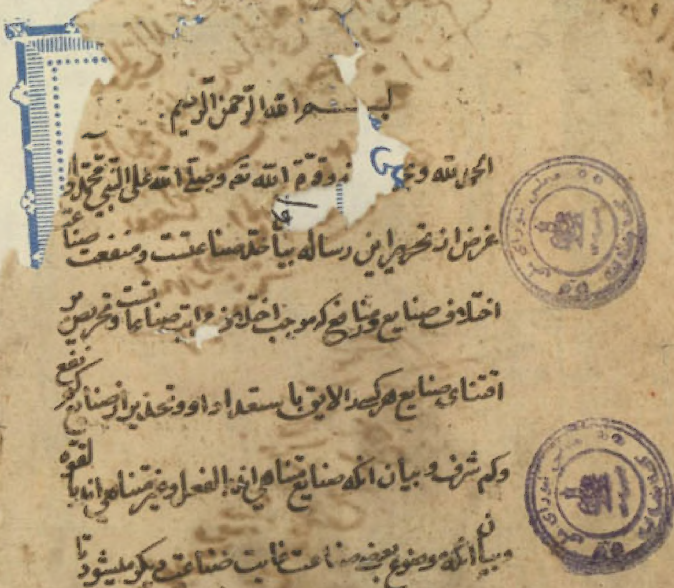 بسم الله الرحمن الرحیم
الحمد لله وحده وقوة الله تعه وصلی الله علی النبی محمد وآله
غرض از تحریر این رساله بیان حد صناعتست ومنفعت صناعات
اختلاف صنایع ومنافع که موجب اختلاف مراتب صناعاتست وتحریص بر
اقتنای صنایع هرکس را لایق باستعداد او وتحذیر از صنایع کم نفع
وکم شرف وبیان آنکه صنایع متناهی اند بالفعل وغیر متناهی اند بالقوه
وبیان آنکه موضوع بعضی صناعت غایت صناعت دیگر میشود تا
مجلس شورای ملی
مجلس شورای ملی